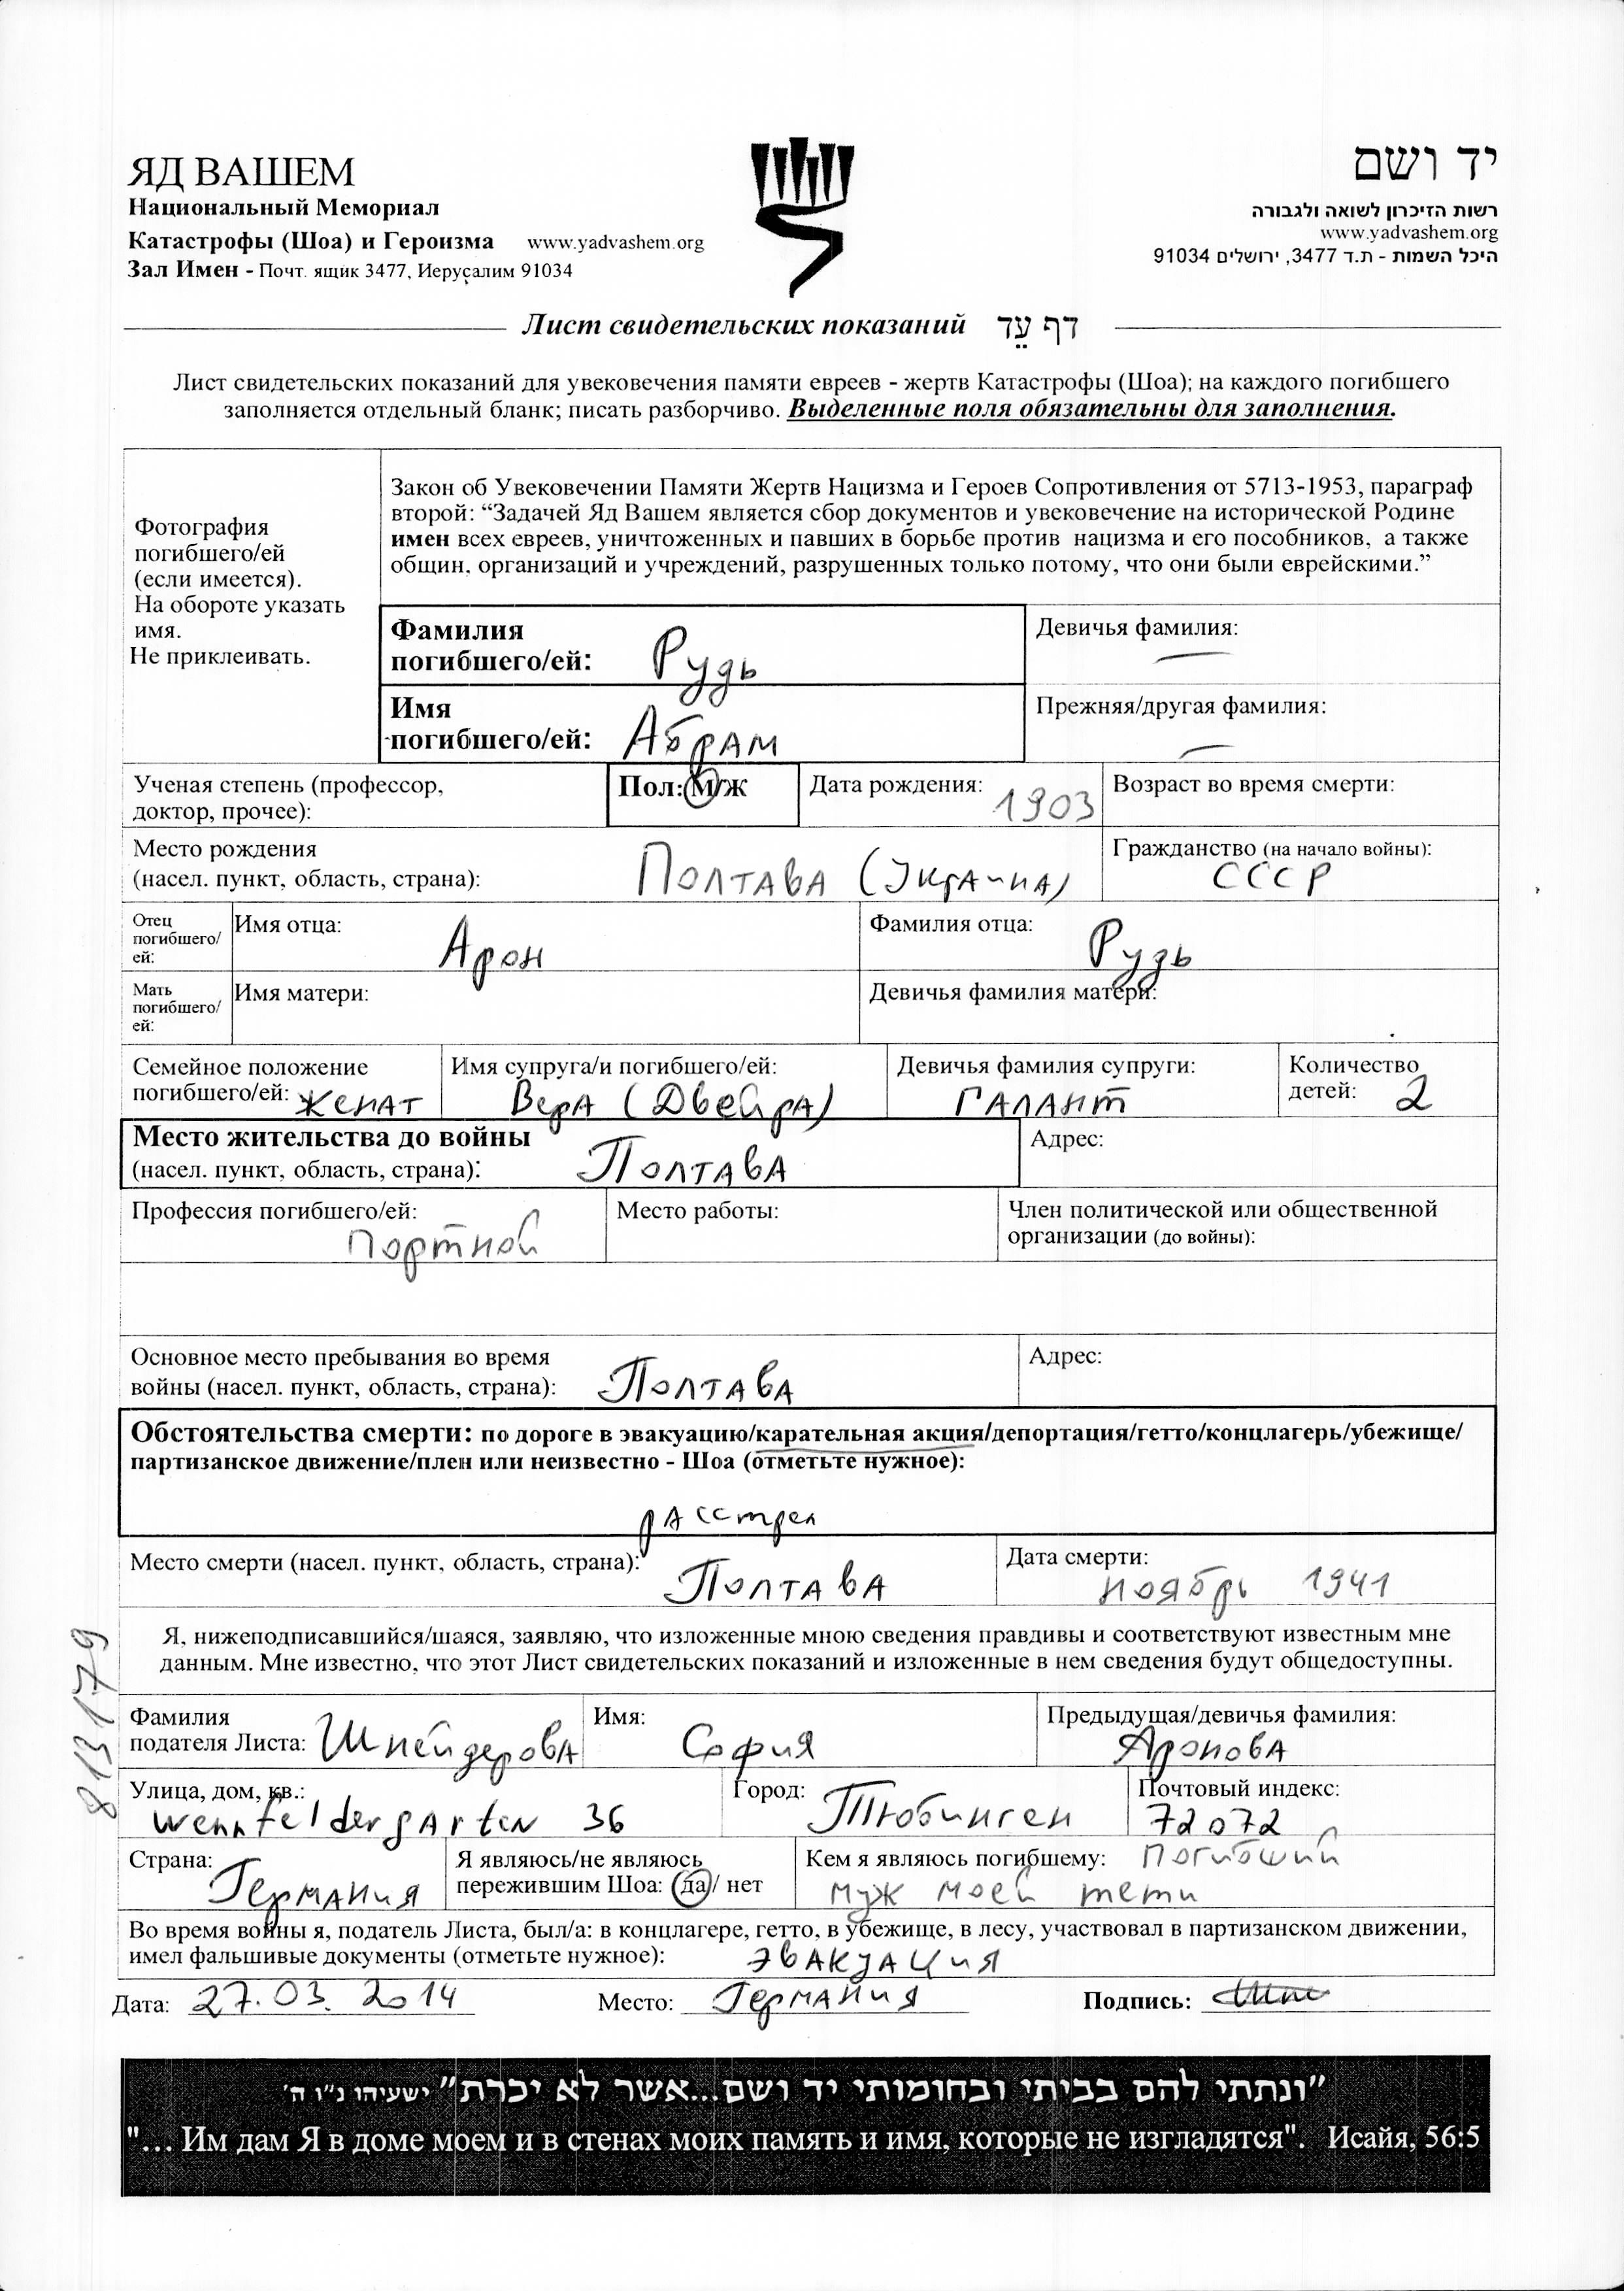 ЯД ВАШЕМ
Национальный Мемориал
Катастрофы (Шоа) и Героизма www.yadvashem.org
Зал Имен - Почт. ящик 3477, Иерусалим 91034
יד ושם
רשות הזיכרון לשואה ולגבורה
www.yadvashem.org
היכל השמות - ת.ד 3477, ירושלים 91034
Лист свидетельских показаний דף עֵד
Лист свидетельских показаний для увековечения памяти евреев - жертв Катастрофы (Шоа); на каждого погибшего
заполняется отдельный бланк; писать разборчиво. Выделенные поля обязательны для заполнения.
Фотография
погибшего/ей
(если имеется).
На обороте указать
имя.
Не приклеивать.
Закон об Увековечении Памяти Жертв Нацизма и Героев Сопротивления от 5713-1953, параграф
второй: “Задачей Яд Вашем является сбор документов и увековечение на исторической Родине
имен всех евреев, уничтоженных и павших в борьбе против нацизма и его пособников, а также
общин, организаций и учреждений, разрушенных только потому, что они были еврейскими.”
Фамилия
погибшего/ей: Рудь
Девичья фамилия: —
Имя
погибшего/ей: Абрам
Прежняя/другая фамилия: —
Ученая степень (профессор,
доктор, прочее):
Пол: М/Ж
Дата рождения: 1903
Возраст во время смерти:
Место рождения
(насел. пункт, область, страна): Полтава (Украина)
Гражданство (на начало войны):
СССР
Отец
погибшего/
ей:
Имя отца: Арон
Фамилия отца: Рудь
Мать
погибшего/
ей:
Имя матери:
Девичья фамилия матери:
Семейное положение
погибшего/ей: женат
Имя супруга/и погибшего/ей:
Вера (Двейра)
Девичья фамилия супруги:
Галант
Количество
детей: 2
Место жительства до войны
(насел. пункт, область, страна): Полтава
Адрес:
Профессия погибшего/ей:
портной
Место работы:
Член политической или общественной
организации (до войны):
Основное место пребывания во время
войны (насел. пункт, область, страна): Полтава
Адрес:
Обстоятельства смерти: по дороге в эвакуацию/карательная акция/депортация/гетто/концлагерь/убежище/
партизанское движение/плен или неизвестно - Шоа (отметьте нужное):
расстрел
Место смерти (насел. пункт, область, страна): Полтава
Дата смерти:
ноябрь 1941
Я, нижеподписавшийся/шаяся, заявляю, что изложенные мною сведения правдивы и соответствуют известным мне
данным. Мне известно, что этот Лист свидетельских показаний и изложенные в нем сведения будут общедоступны.
813179
Фамилия
подателя Листа: Шнейдерова
Имя: София
Предыдущая/девичья фамилия:
Аронова
Улица, дом, кв.:
Wennfeldergarten 36
Город: Тюбинген
Почтовый индекс:
72072
Страна: Германия
Я являюсь/не являюсь
пережившим Шоа: да/ нет
Кем я являюсь погибшему: Погибший
муж моей тети
Во время войны я, податель Листа, был/а: в концлагере, гетто, в убежище, в лесу, участвовал в партизанском движении,
имел фальшивые документы (отметьте нужное): эвакуация
Дата: 27.03.2014 Место: Германия Подпись:
"ונתתי להם בביתי ובחומותי יד ושם...אשר לא יכרת" ישעיהו נ"ו ה'
"... Им дам Я в доме моем и в стенах моих память и имя, которые не изгладятся". Исайя, 56:5